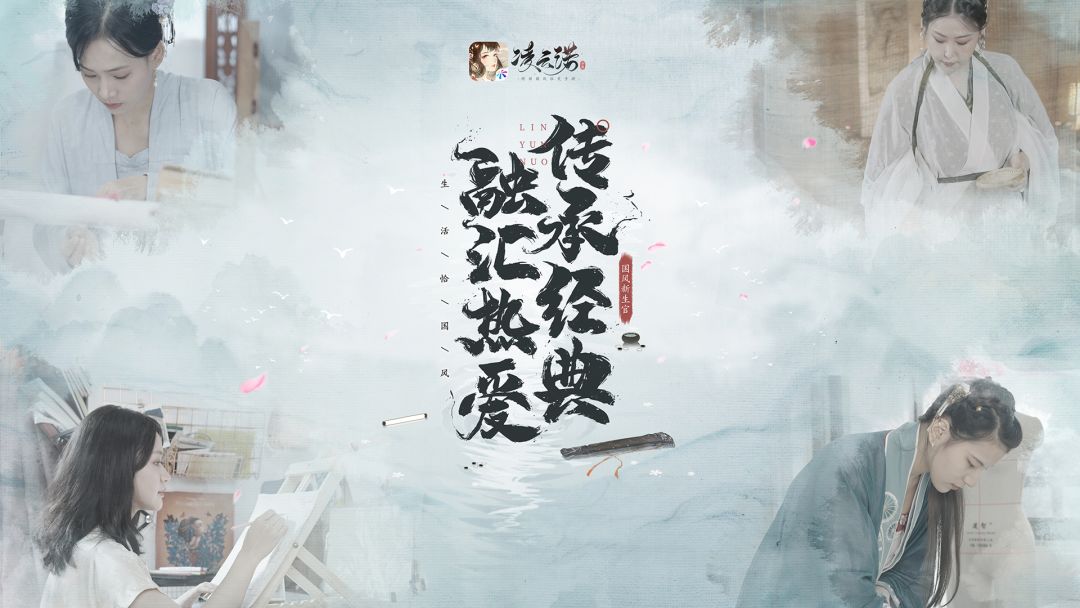 凌云诺
LIN
YUN
NUO
传承经典
融汇热爱
国风新生官
生/活/恰/国/风